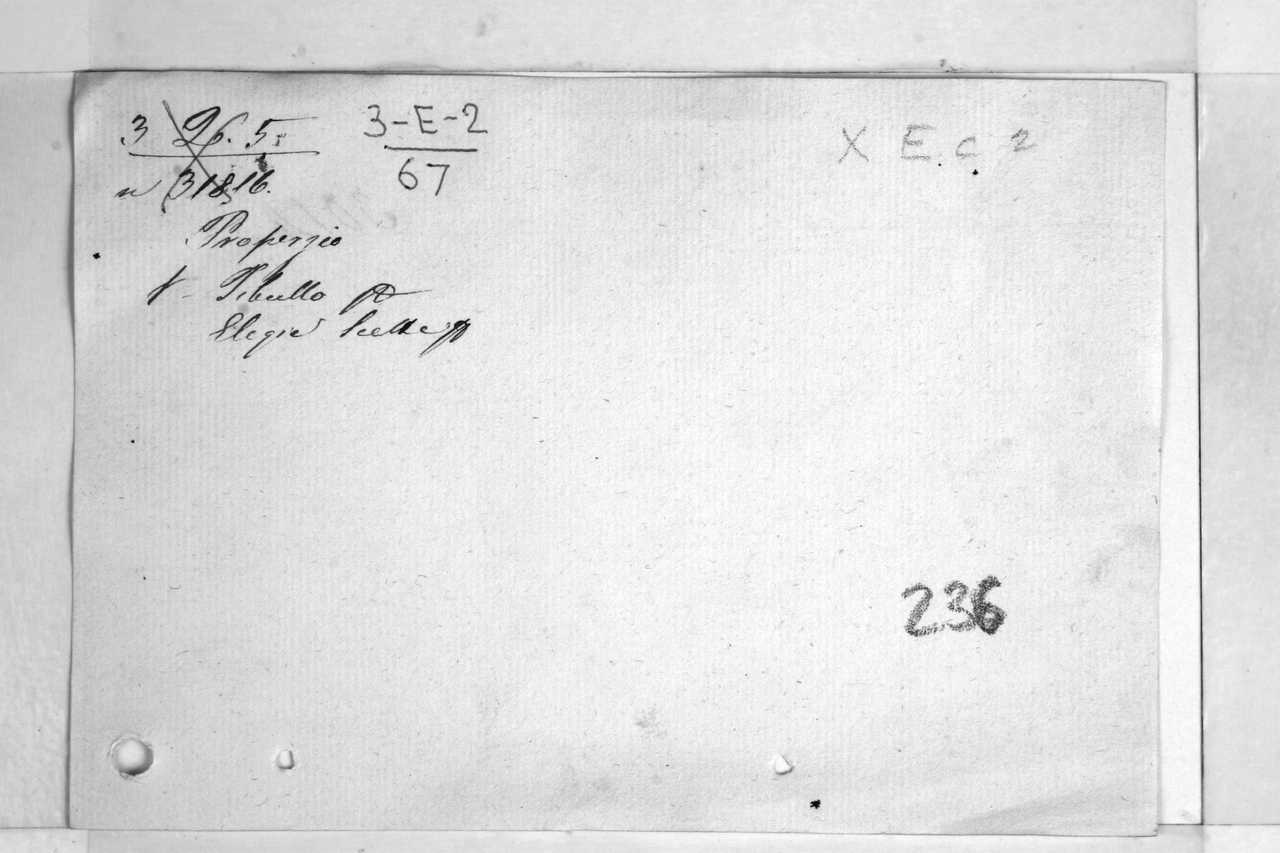 3 26. 5. 3-E-2
67
X E. c. 2
Properzio
Tibullo
Elegie Scelte
236